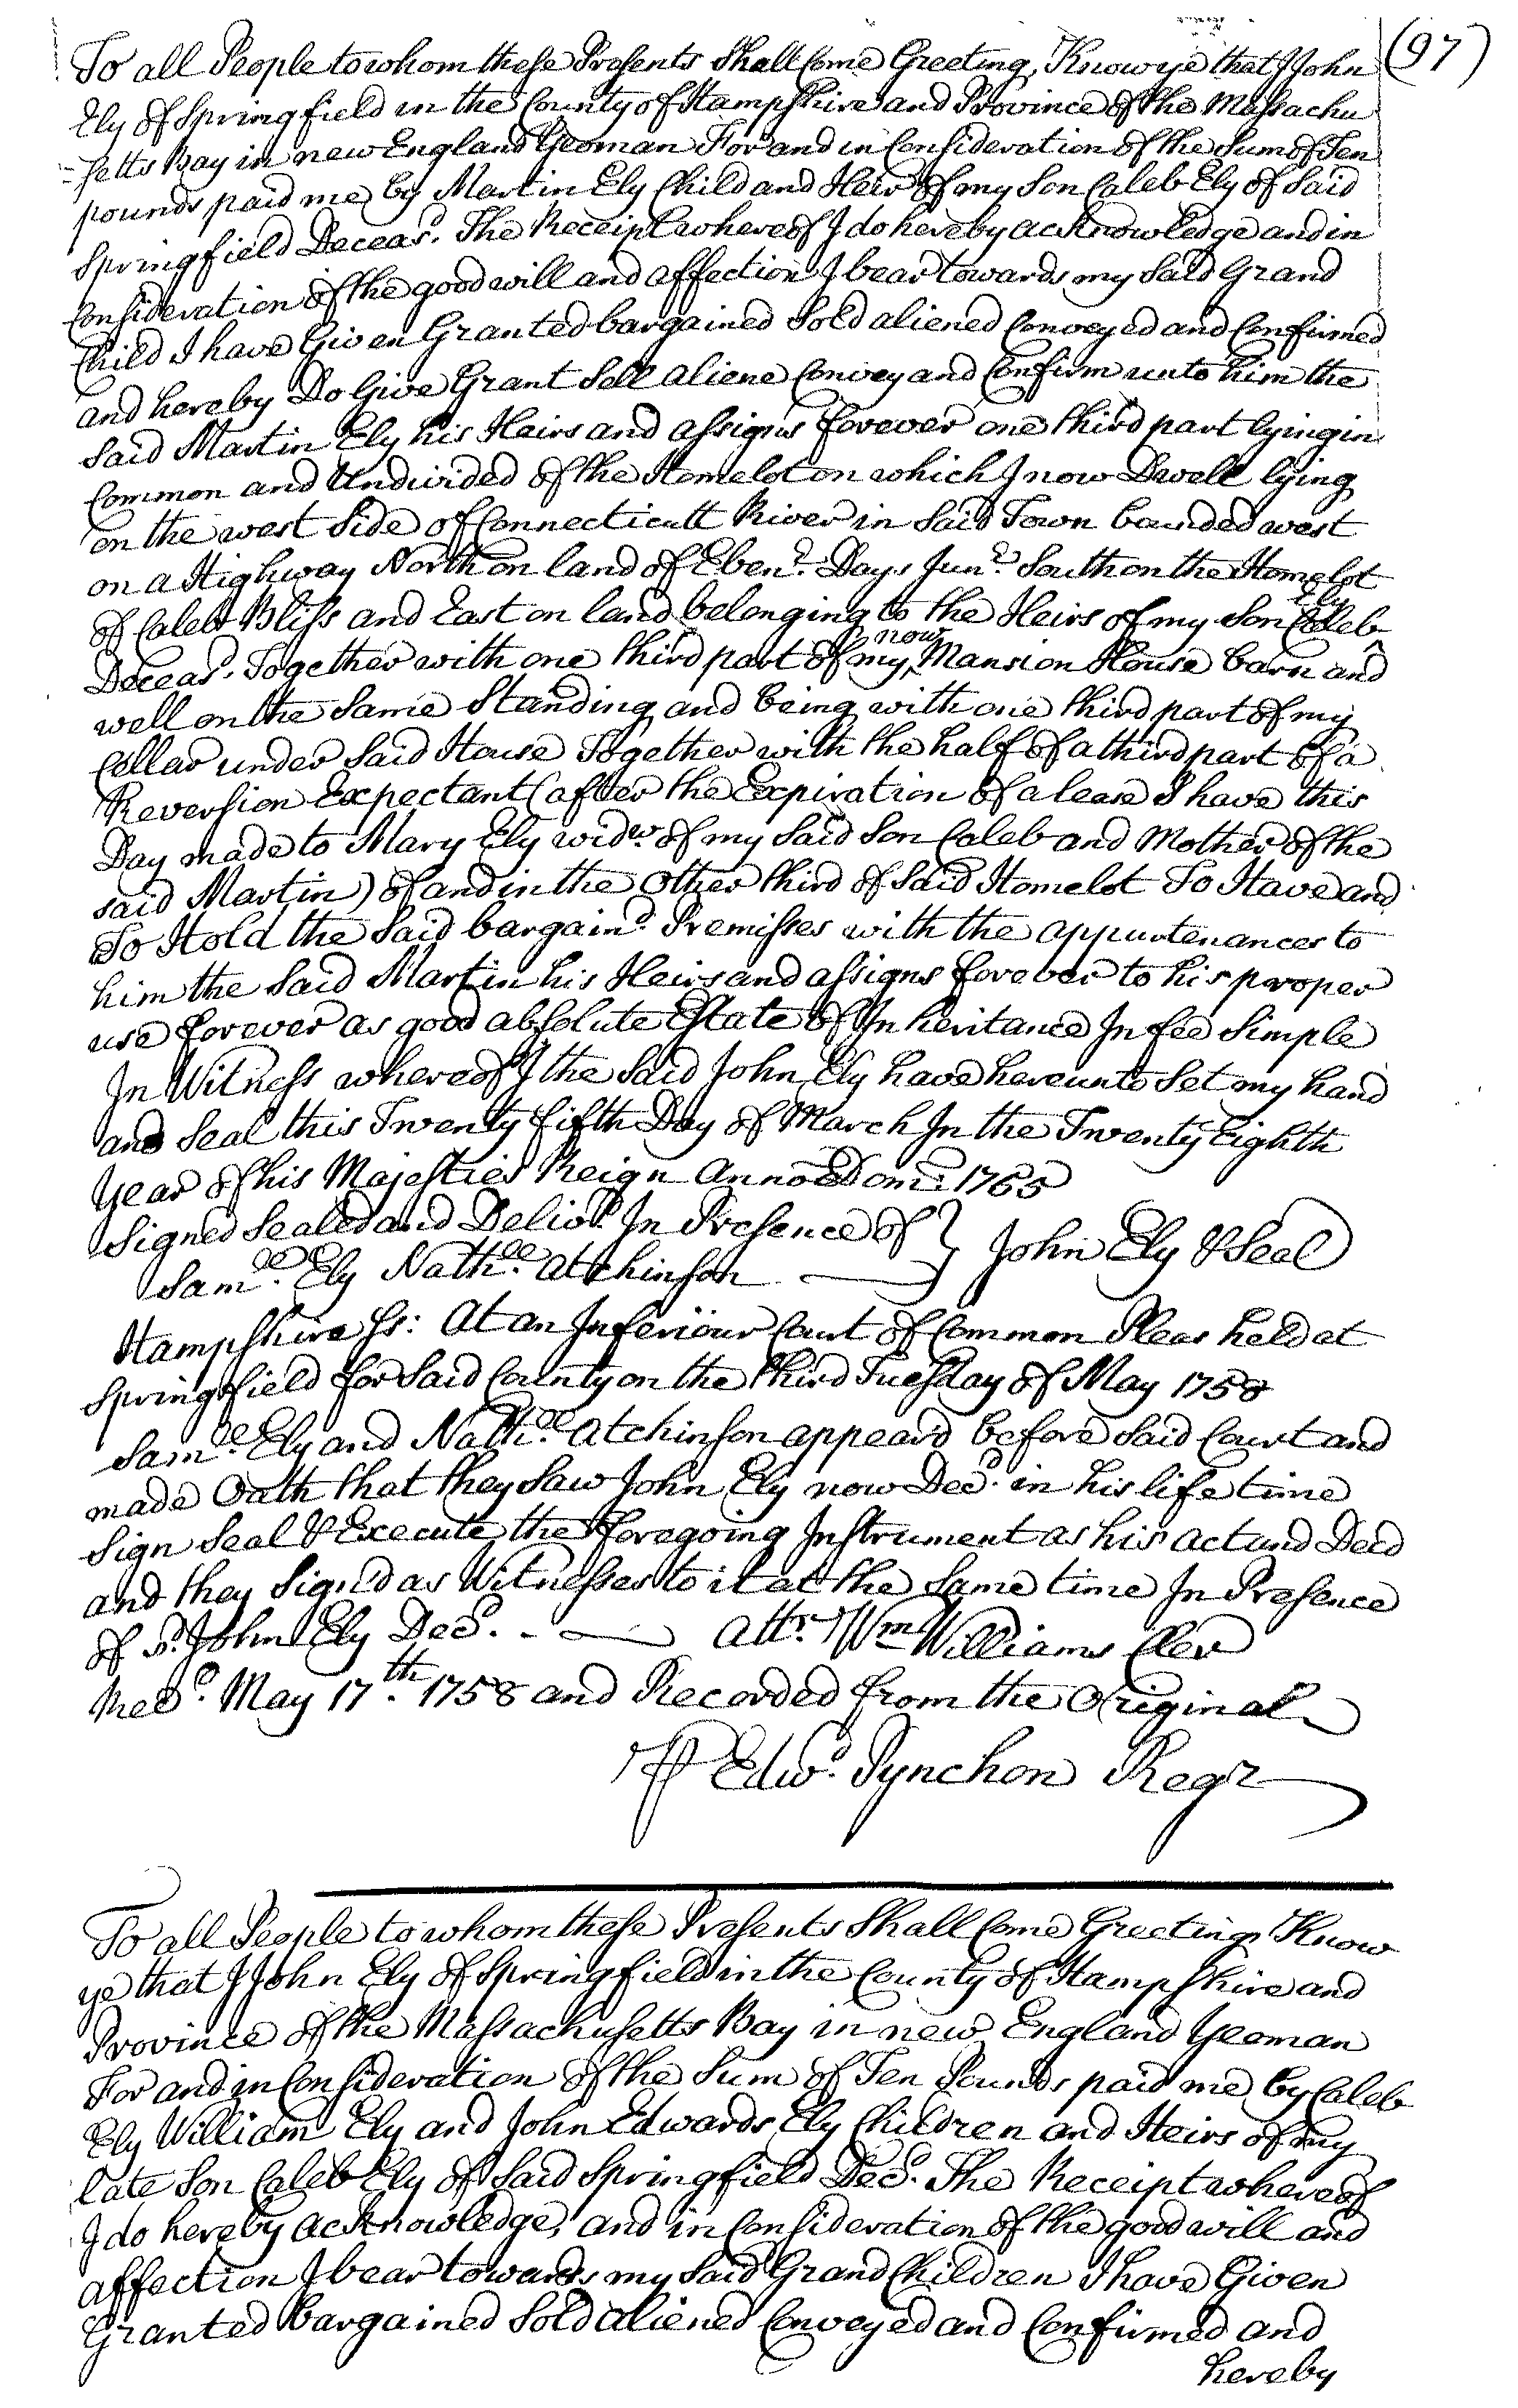 (97)
To all People to whom these Presents Shall Come Greeting, Know ye that I John
Ely of Springfield in the County of Hampshire and Province of the Massachu
=setts Bay in new England Yeoman For and in Consideration of the Sum of Ten
pounds paid me by Martin Ely Child and Heir of my Son Caleb Ely of Said
Springfield Deceasd. The Receipt whereof I do hereby acknowledge and in
Consideration of the good will and affection I bear towards my Said Grand
Child I have Given Granted bargained Sold aliened Conveyed and Confirmed
and hereby Do Give Grant Sell aliene Convey and Confirm unto him the
Said Martin Ely his Heirs and assigns forever one third part lying in
Common and Undivided of the Homelot on which I now Dwell lying
on the west Side of Connecticutt River in Said Town bounded west
on a Highway North on land of Ebenr. Day Junr. South on the Homelot
of Caleb Bliss and East on land belonging to the Heirs of my Son Caleb Ely
Deceasd. Together with one third part of my now Mansion House barn and
well on the Same Standing and being with one third part of my
Cellar under Said House Together with the half of a third part of a
Reversion Expectant (after the Expiration of a lease I have this
Day made to Mary Ely widw. of my Said Son Caleb and Mother of the
said Martin) of and in the Other third of Said Homelot To Have and
To Hold the Said bargaind. Premisses with the appurtenances to
him the Said Martin his Heirs and assigns forever to his proper
use forever as good absolute Estate of Inheritance In fee Simple
In Witness whereof I the Said John Ely have hereunto Set my hand
and Seal this Twenty fifth Day of March In the Twenty Eighth
Year of his Majesties Reign Anno Domi: 1755
Signed Sealed and Delivd. In Presence of } John Ely & Seal
Samll. Ely Nathll. Atchinson
Hampshire Ss: At an Inferiour Court of Common Pleas held at
Springfield for Said County on the third Tuesday of May 1758
Samll. Ely and Nathll. Atchinson appeard before Said Court and
made Oath that they Saw John Ely now Decd. in his life time
Sign Seal & Execute the foregoing Instrument as his act and Deed
and they Signd as Witnesses to it at the Same time In Presence
of sd. John Ely Decd. - Attr. Wm Williams Cler
Recd. May 17th. 1758 and Recorded from the Original
P Edwd. Pynchon Regr
To all People to whom these Presents Shall Come Greeting Know
ye that I John Ely of Springfield in the County of Hampshire and
Province of the Massachusetts Bay in new England Yeoman
For and in Consideration of the Sum of Ten Pounds paid me by Caleb
Ely William Ely and John Edwards Ely Children and Heirs of my
late Son Caleb Ely of Said Springfield Decd. The Receipt whereof
I do hereby acknowledge, and in Consideration of the good will and
affection I bear towards my Said Grand Children I have Given
Granted bargained Sold aliened Conveyed and Confirmed and
hereby